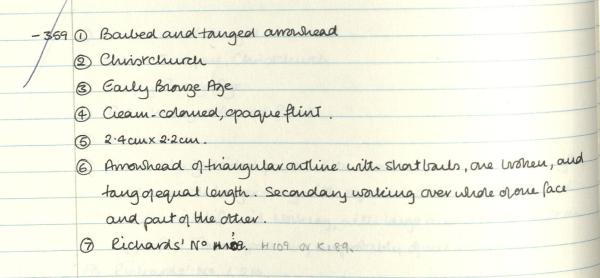 -359 ① Barbed and tanged arrowhead
② Christchurch
③ Early Bronze Age
④ Cream-coloured, opaque flint.
⑤ 2.4cm x 2.2cm.
⑥ Arrowhead of triangular outline with short barbs, one broken, and
tang of equal length. Secondary working over whole of one face
and part of the other.
⑦ Richards' No H109 or K189.